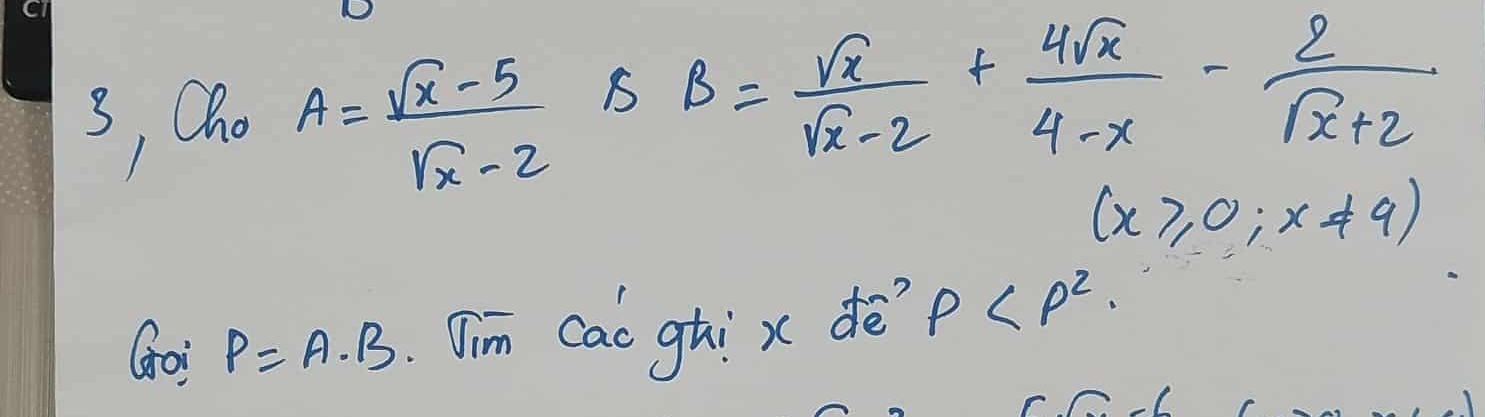 3, Cho A = (√x - 5)/(√x - 2) & B = √x/(√x - 2) + 4√x/(4 - x) - 2/(√x + 2)
(x ≥ 0; x ≠ 4)
Gọi P = A.B. Tìm các gtrị x để P < P².